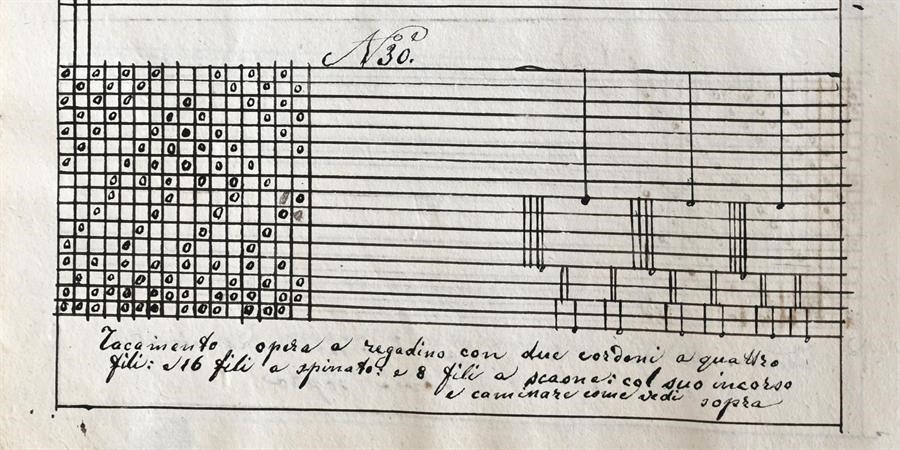 N.º 30.
Tacamento opera a regadino con due cordoni a quattro
fili: e 16 fili a spinato: e 8 fili a scaone: col suo incorso
e caminare come vedi sopra